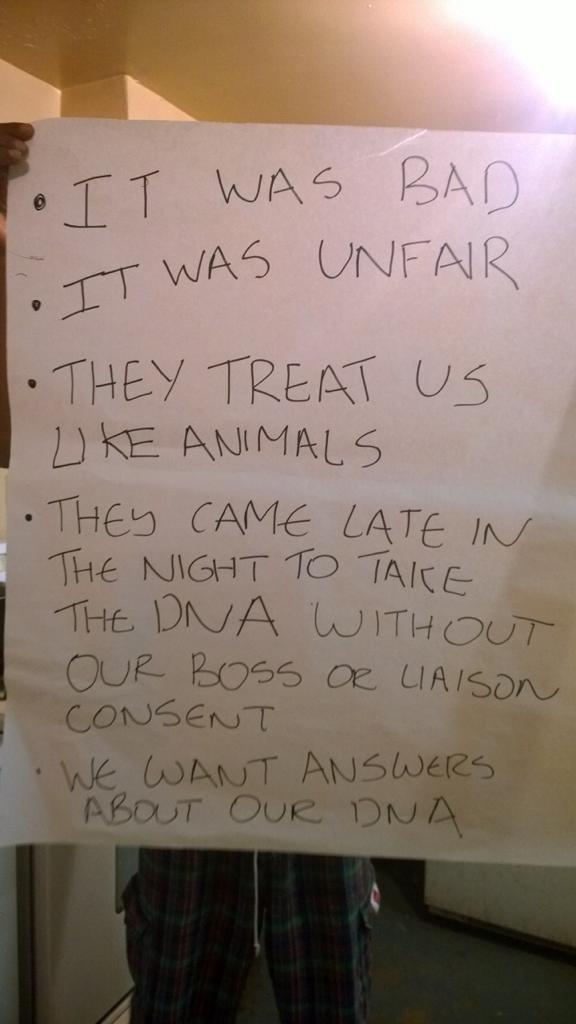 • IT WAS BAD
• IT WAS UNFAIR
• THEY TREAT US
LIKE ANIMALS
• THEY CAME LATE IN
THE NIGHT TO TAKE
THE DNA WITHOUT
OUR BOSS OR LIAISON
CONSENT
• WE WANT ANSWERS
ABOUT OUR DNA